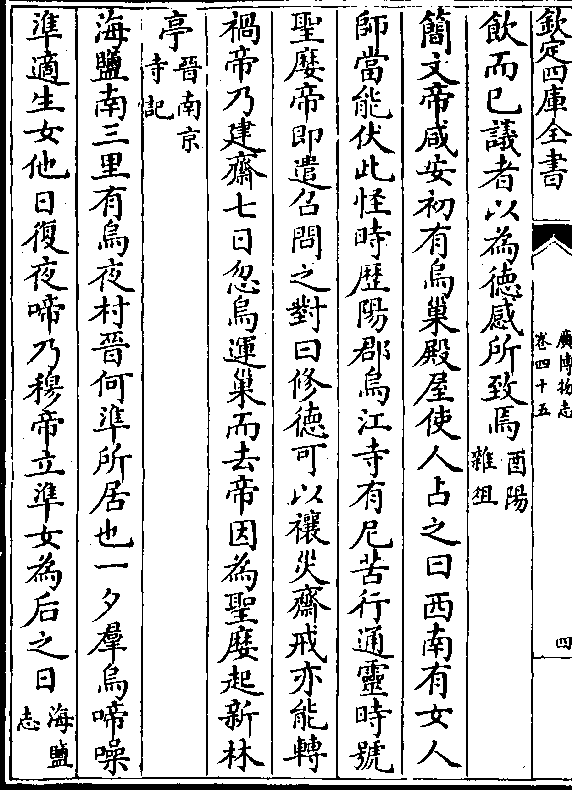 欽定四庫全書
廣博物志
卷四十五
四
飲而已議者以為德感所致焉酉陽
雜俎
簡文帝咸安初有烏巢殿屋使人占之曰西南有女人
師當能伏此怪時歴陽郡烏江寺有尼苦行通靈時號
聖㜈帝即遣召問之對曰修德可以禳災齋戒亦能轉
禍帝乃建齋七日忽烏運巢而去帝因為聖㜈起新林
亭晉南京
寺記
海鹽南三里有烏夜村晉何準所居也一夕羣烏啼噪
準適生女他日復夜啼乃穆帝立準女為后之日海鹽
志